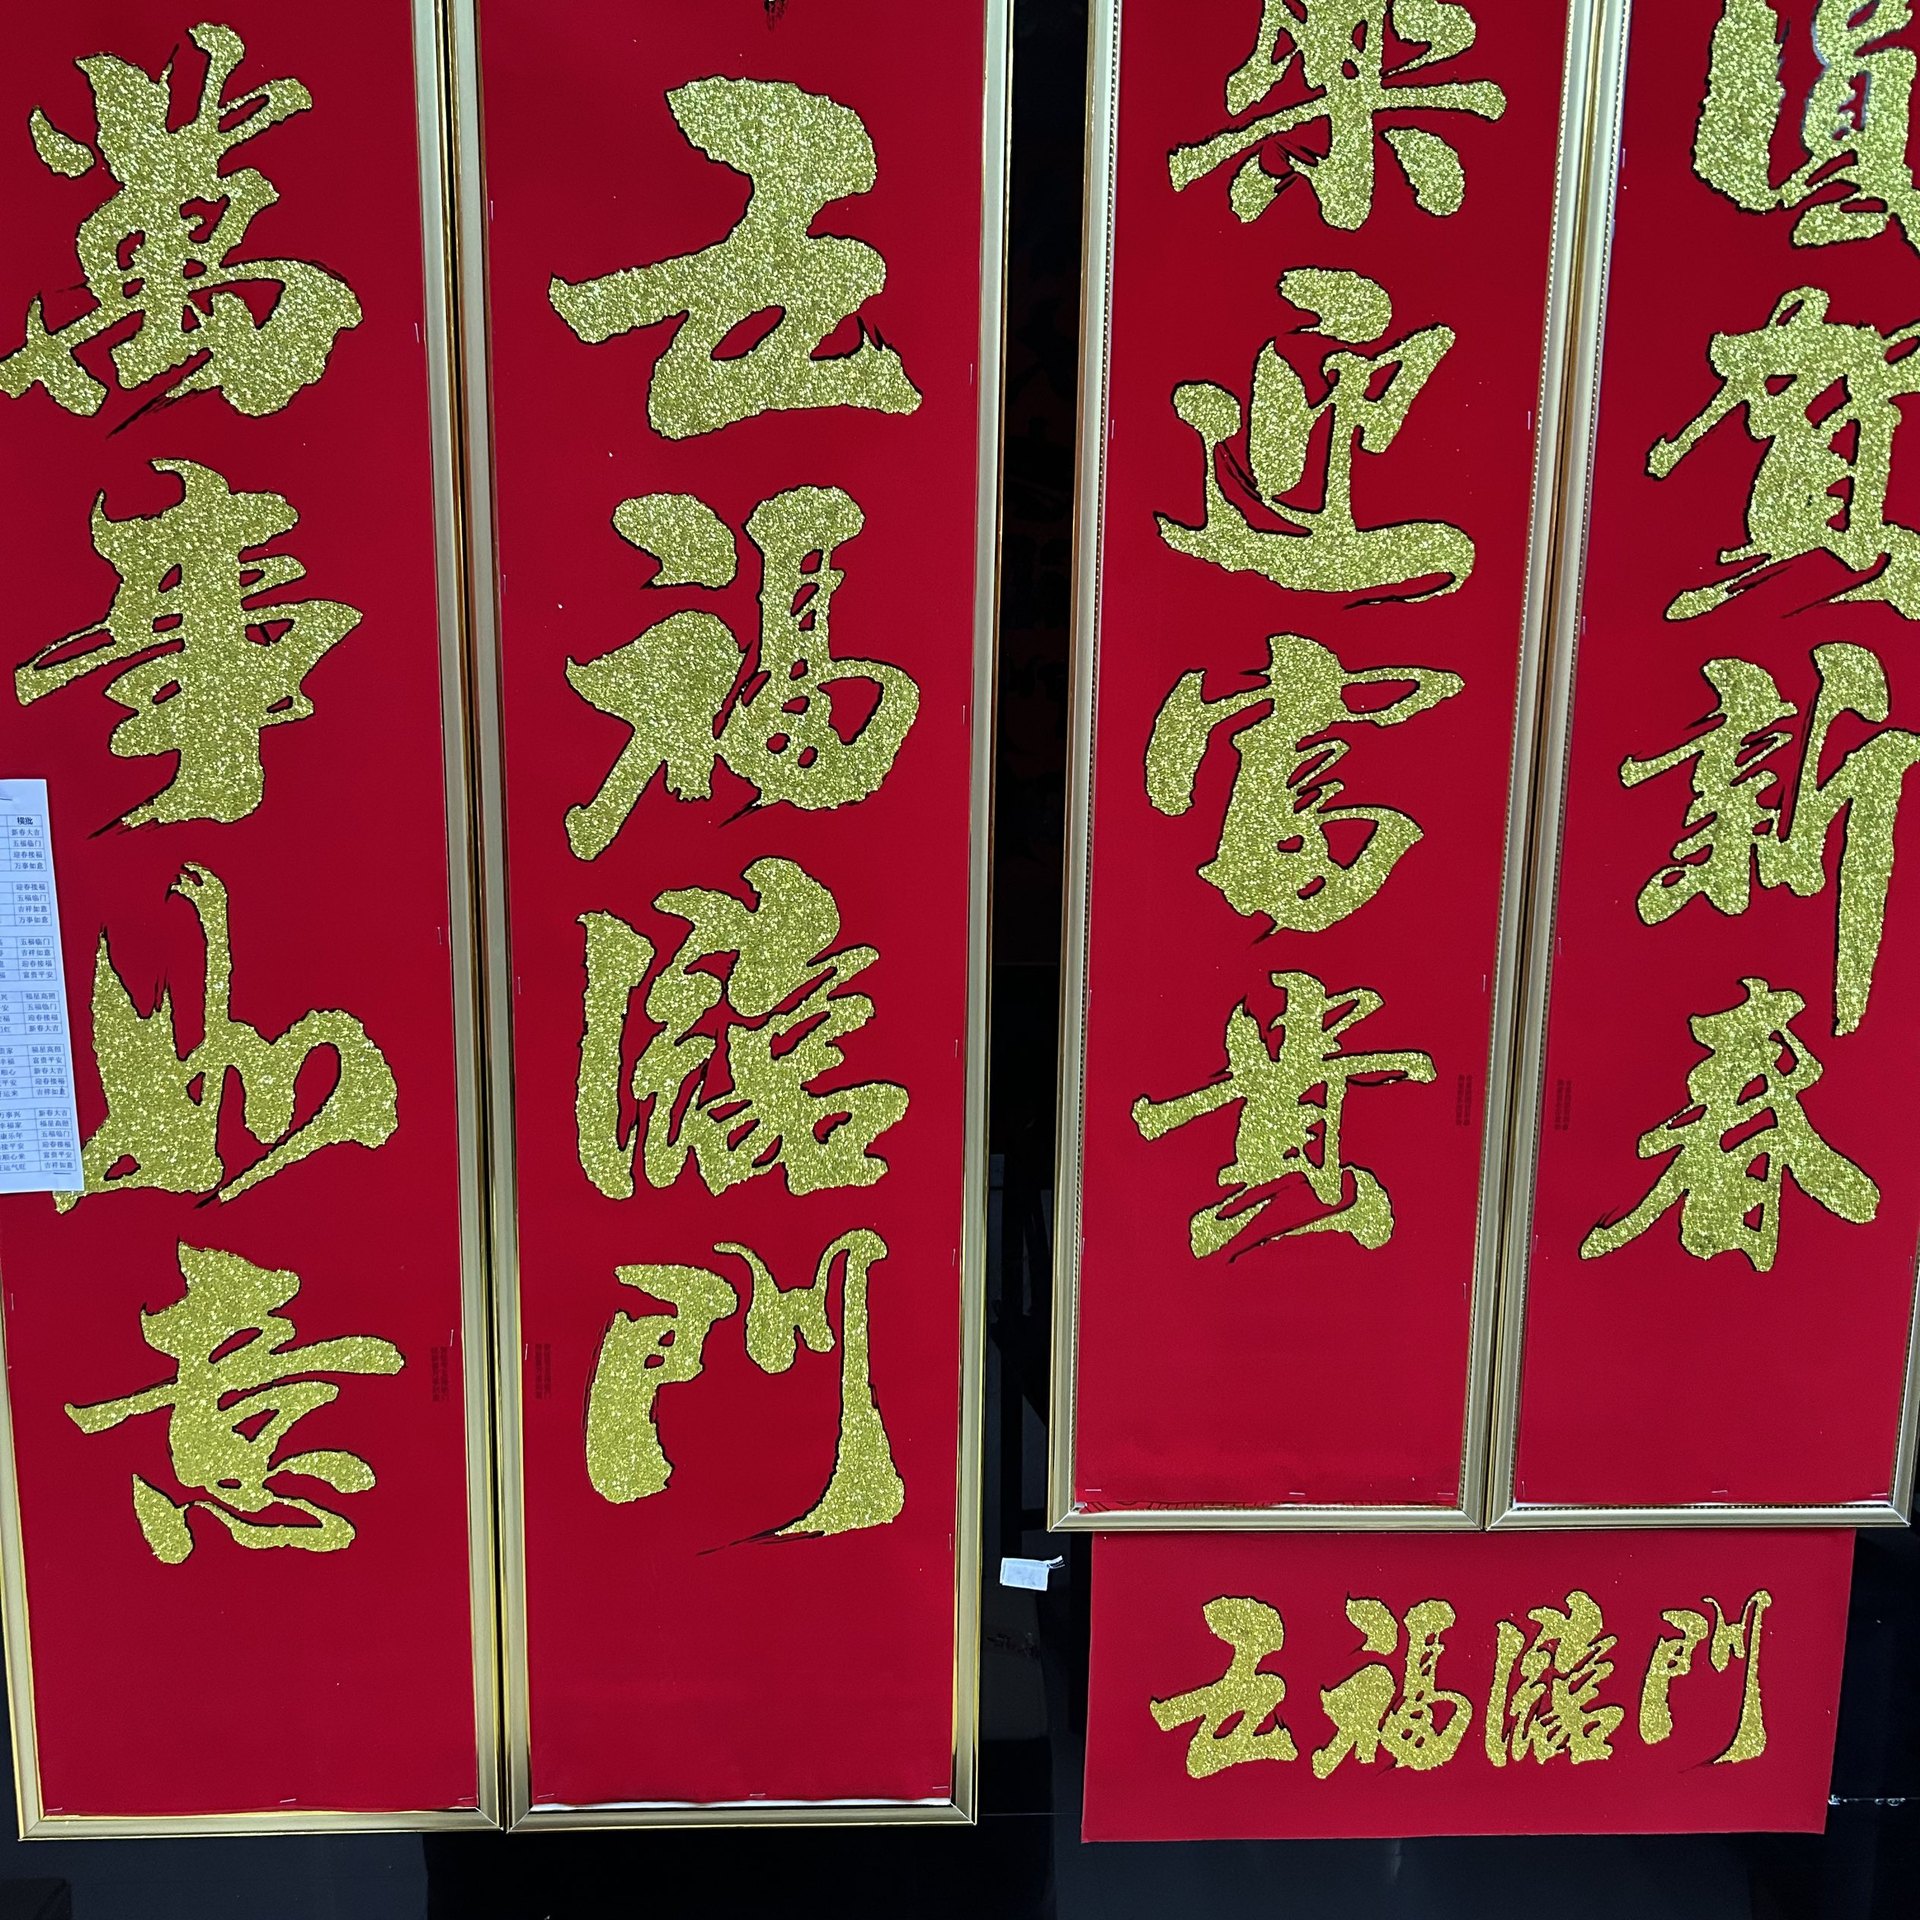 萬事如意
五福臨門
樂迎富貴
賀新春
五福臨門
横批
新春大吉
五福临门
迎春接福
万事如意
迎春接福
五福临门
吉祥如意
万事如意
五福临门
吉祥如意
迎春接福
富贵平安
福星高照
五福临门
迎春接福
新春大吉
福星高照
富贵平安
新春大吉
迎春接福
吉祥如意
新春大吉
福星高照
五福临门
迎春接福
富贵平安
吉祥如意